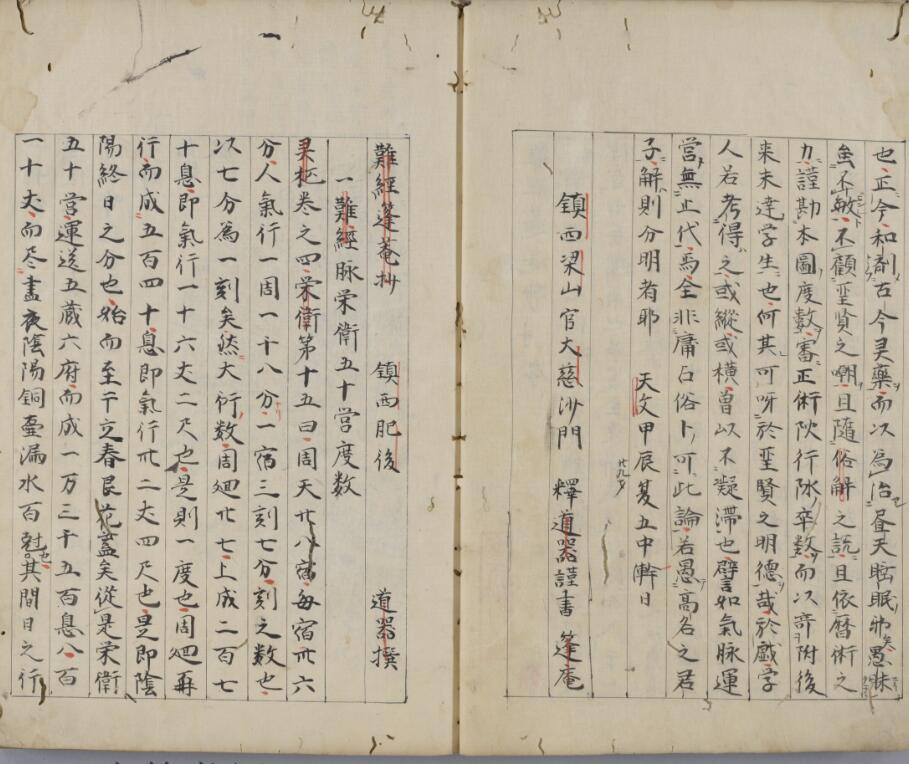 也正今和剤古今灵藥而以為治昼天眩眠弗矣愚昧
㒵不敏不顧圣賢之嘲且隨俗解之説且依暦術之
力謹勘本圖度數審正術欤行脉卒数而以竒附後
来未達学生也何其可呀於圣賢之明德哉於戯学
人若考得之或縱或横曽以不凝滞也譬如氣脉運
営無止代焉全非庸占俗卜可此論若愚高名之君
子解則分明者耶　天文甲辰夏五中澣日
廿九岁
鎮西梁山官大慈沙門　釋道器謹書　篷庵
難經篷菴抄　鎮西肥後　道器撰
一難經脉栄衛五十営度数
灵柩巻之四栄衛第十五曰周天廿八宿每宿卅六
分人氣行一周一十八分一宿三刻七分刻之数也
以七分為一刻矣然大衍数周廻廿七上成二百七
十息即氣行一十六丈二尺也是則一度也周廻再
行而成五百四十息即氣行卅二丈四尺也是即陰
陽終日之分也始而至干立春艮花蓋矣從是栄衛
五十営運送五蔵六府而成一万三千五百息八百
一十丈而尽晝夜陰陽銅壷漏水百尅也其間日之行